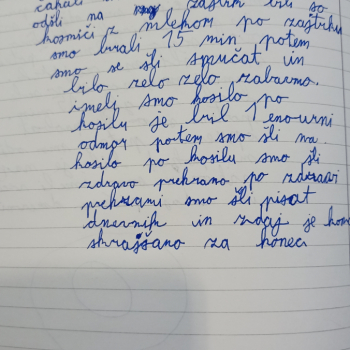 čakali zajtrk bili so
odšli na
kosmiči z mlekom po zajtrku
smo brali 15 min potem
smo se šli spručat in
bilo zelo zelo zabavno.
imeli smo kosilo po
kosilu je bil 1 enourni
odmor potem smo šli na
kosilo po kosilu smo šli
zdravo prehrano po zdravi
prehrami smo šli pisat
dnevnik in zdaj je kom
skrajšano za konec